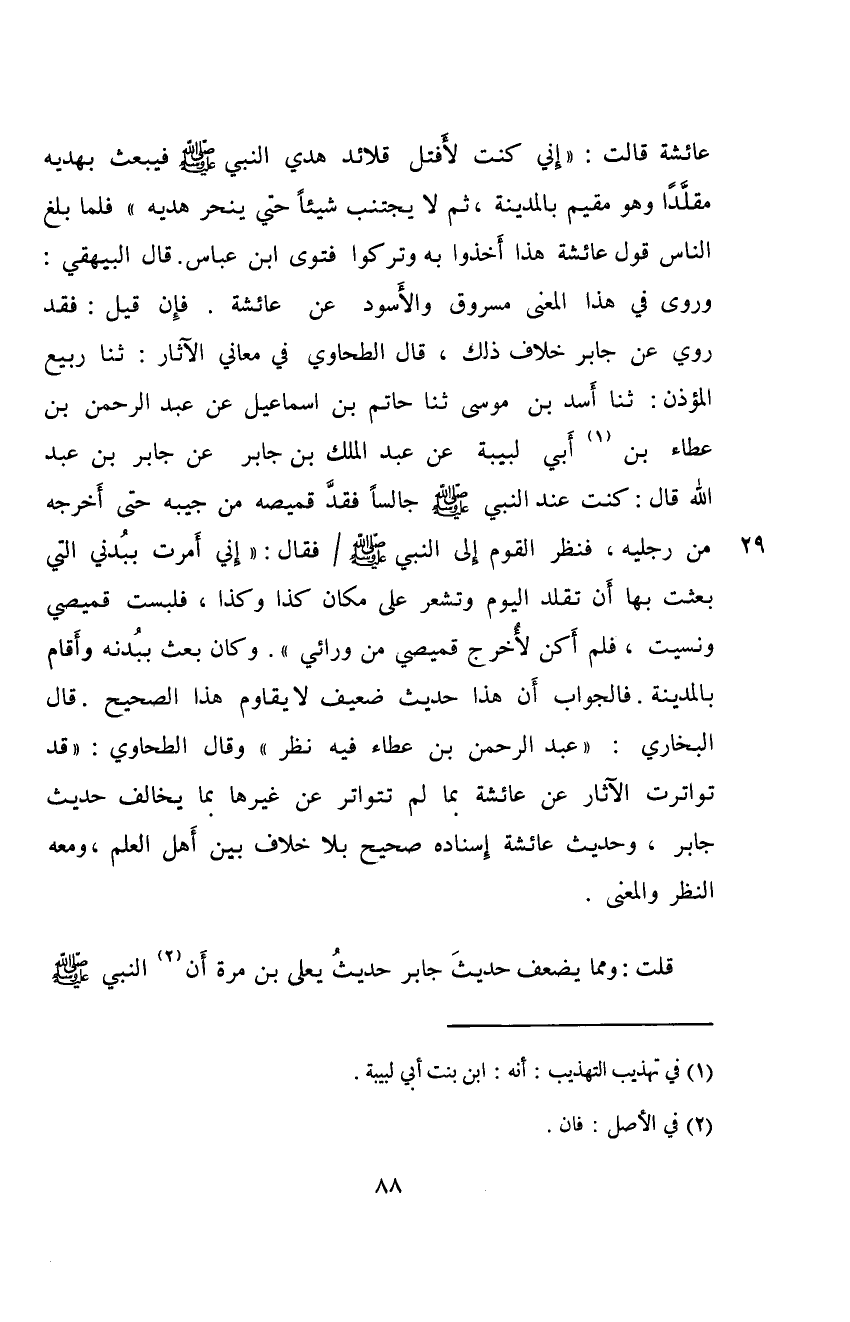 عائشة قالت : « إني كنت لأَفتل قلائد هدي النبي ﷺ فيبعث بهديه
مقلَّدًا وهو مقيم بالمدينة ، ثم لا يجتنب شيئاً حتي ينحر هديه » فلما بلغ
الناس قول عائشة هذا أَخذوا به وتركوا فتوى ابن عباس . قال البيهقي :
وروى في هذا المعنى مسروق والأَسود عن عائشة . فإن قيل : فقد
روي عن جابر خلاف ذلك ، قال الطحاوي في معاني الآثار : ثنا ربيع
المؤذن : ثنا أَسد بن موسى ثنا حاتم بن اسماعيل عن عبد الرحمن بن
عطاء بن (١) أَبي لبيبة عن عبد الملك بن جابر عن جابر بن عبد
الله قال : كنت عند النبي ﷺ جالساً فقدَّ قميصه من جيبه حتى أَخرجه
من رجليه ، فنظر القوم إلى النبي ﷺ / فقال : « إني أَمرت ببُدني التي ٢٩
بعثت بها أَن تقلد اليوم وتشعر على مكان كذا وكذا ، فلبست قميصي
ونسيت ، فلم أَكن لأُخرج قميصي من ورائي » . وكان بعث ببُدنه وأَقام
بالمدينة . فالجواب أَن هذا حديث ضعيف لا يقاوم هذا الصحيح . قال
البخاري : « عبد الرحمن بن عطاء فيه نظر » وقال الطحاوي : « قد
تواترت الآثار عن عائشة بما لم تتواتر عن غيرها بما يخالف حديث
جابر ، وحديث عائشة إسناده صحيح بلا خلاف بين أَهل العلم ، ومعه
النظر والمعنى .
قلت : ومما يضعف حديثَ جابر حديثُ يعلى بن مرة أَن (٢) النبي ﷺ
(١) في تهذيب التهذيب : أنه : ابن بنت أبي لبيبة .
(٢) في الأصل : فان .
٨٨